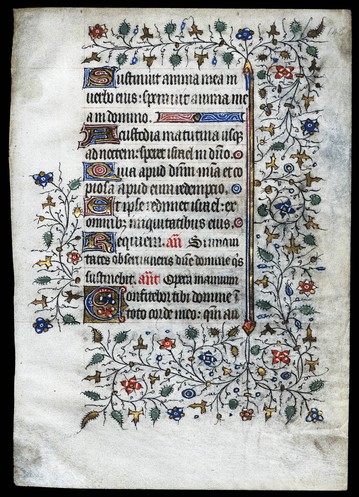 Sustinuit anima mea in
verbo eius: speravit anima me
a in domino.
A custodia matutina usq3
ad noctem: speret isrl in dno.
Quia apud dnm mia et co
piosa apud eum redempcio.
Et ipse redimet israel: ex
omnibus iniquitatibus eius.
Requiem. an. Si iniqui
tates observaveris dne domine qs
sustinebit. ant. Opera manuum
Confitebor tibi domine i
toto corde meo: qm au